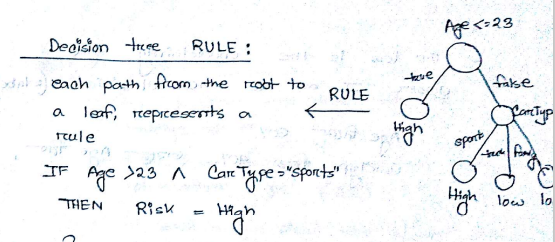 Decision tree RULE :
each path from the root to
a leaf, represents a
rule
IF Age >23 ∧ Car Type = "sports"
THEN Risk = High
RULE
Age <= 23
true
false
High
Car Typ
sports
truck
family
High
low
lo